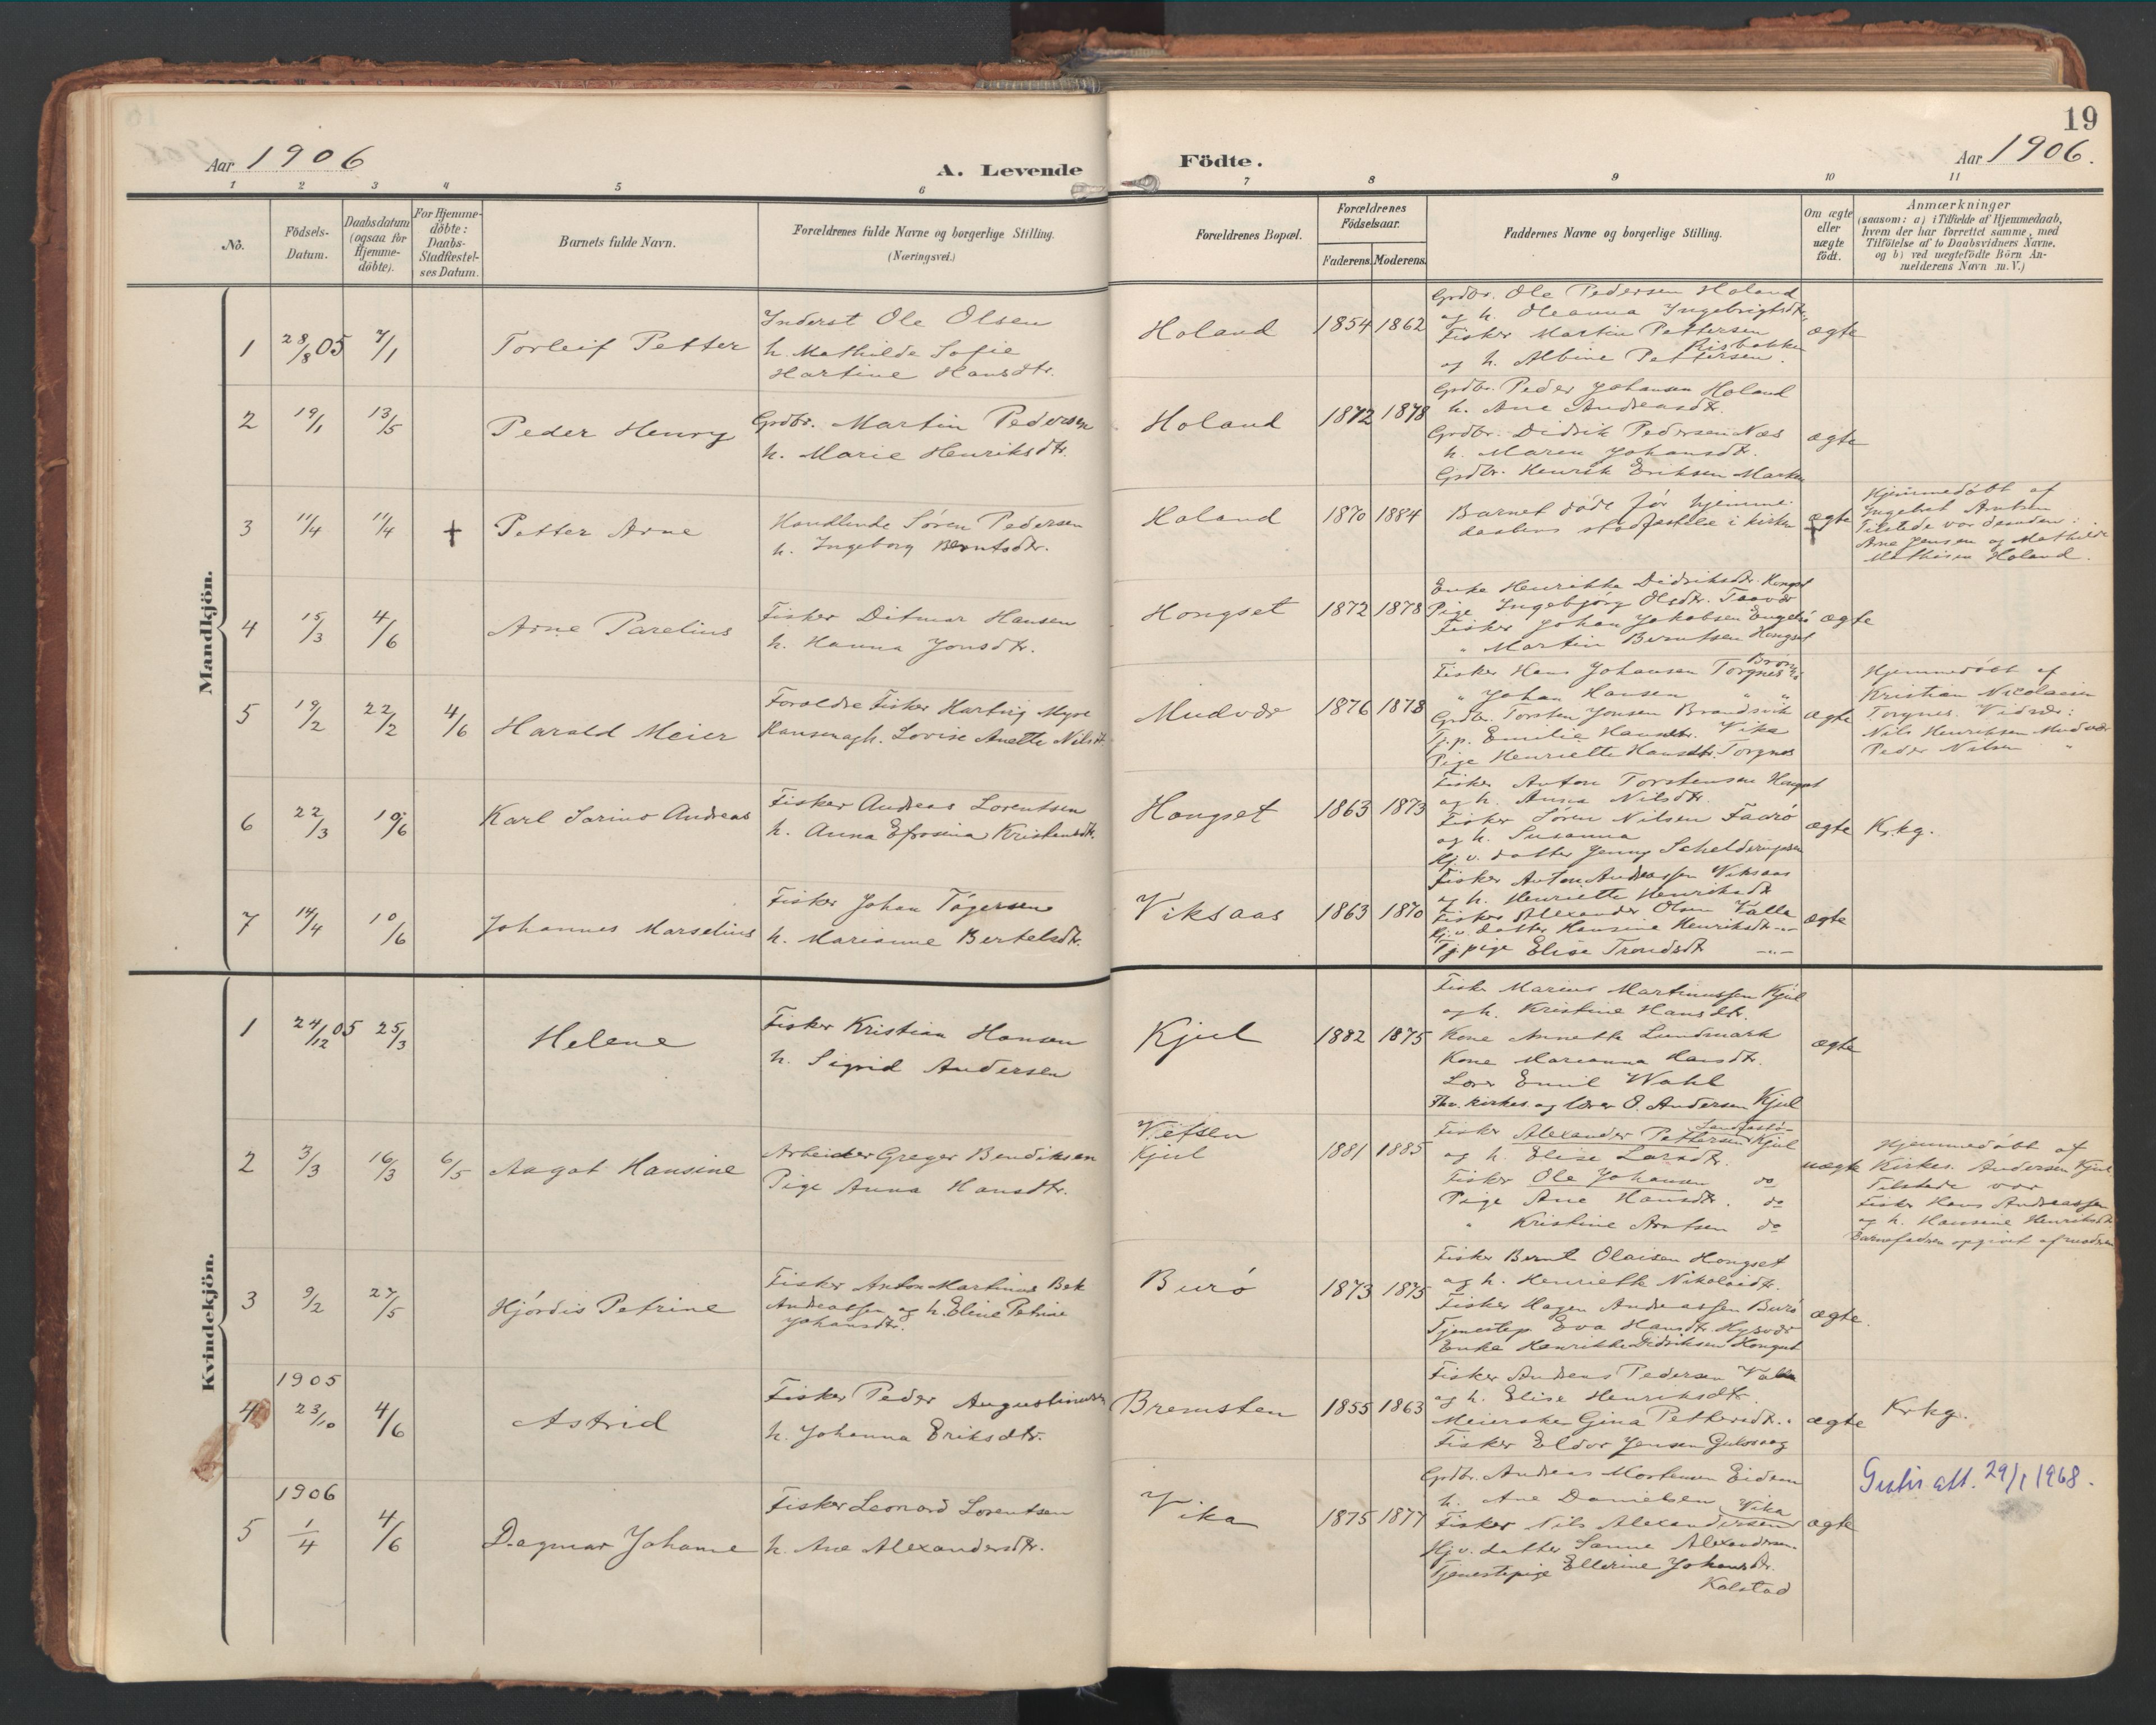 19
Aar 1906 A. Levende Födte. Aar 1906.
1 2 3 4 5 6 7 8 9 10 11
No.
Födsels-
Datum.
Daabsdatum
(ogsaa for
Hjemme-
döbte).
For Hjemme-
döbte:
Daabs-
Stadfæstel-
ses Datum.
Barnets fulde Navn.
Forældrenes fulde Navne og borgerlige Stilling.
(Næringsvei.)
Forældrenes Bopæl.
Forældrenes
Födselsaar.
Faderens. Moderens.
Faddernes Navne og borgerlige Stilling.
Om ægte
eller
uægte
födt.
Anmærkninger
(saasom: a) i Tilfælde af Hjemmedaab,
hvem der har forrettet samme, med
Tilföielse af to Daabsvidners Navne.
og b) ved uægtefödte Börn An-
melderens Navn m. V.)
Mandkjön.
1 28/8 05 7/1 Torleif Petter
Inderst Ole Olsen
h. Mathilde Sofie
Martine Hansdtr.
Holand 1854 1862
Grdbr. Ole Pedersen Holand
og h. Oleanna Ingebrigtsdtr.
Fisker Martin Pettersen
Risbakken
og h. Albine Pettersen.
ægte
2 19/1 13/5 Peder Henry
Grdbr. Martin Pedersen
h. Marie Henriksdtr.
Holand 1872 1878
Grdbr. Peder Johansen Holand
h. Ane Andreasdtr.
Grdbr. Didrik Pedersen Næs
h. Maren Johansdtr.
Grdbr. Henrik Eriksen Marken
ægte
3 11/4 11/4 † Petter Arne
Handlende Sören Pedersen
h. Ingeborg Berntsdtr.
Holand 1870 1884
Barnet döde för hjemme-
daabens stadfæstelse i kirken
ægte †
Hjemmedöbt af
Ingebret Arntsen
Tilstede var desuden:
Arne Jensen og Mathilde
Mathisen Holand.
4 15/3 4/6 Arne Parelius
Fisker Ditmar Hansen
h. Hanna Jonsdtr.
Hongset 1872 1878
Enke Henrikke Didriksdtr. Hongset
Pige Ingebjörg Olsdtr.
Fisker Johan Jakobsen
" Martin Berntsen Hongset
ægte
5 19/2 22/2 4/6 Harald Meier
Foreldre Fisker Hartvig Myre
Hansen og h. Lovise Anette Nilsdtr.
Mudvær 1876 1878
Fisker Hans Johansen Torgnes
" Johan Hansen " "
Grdbr. Torsten Jonsen Brandsvik
Tj.p. Emilie Hansdtr. Vika
Pige Henriette Hansdtr. Torgnes
ægte
Hjemmedöbt af
Kristian Nicolaisen
Torgnes. Vidner:
Nils Henriksen Mudvær
Peder Nilsen "
6 22/3 10/6 Karl Sarino Andreas
Fisker Andreas Lorentsen
h. Anna Efrosina Kristensdtr.
Hongset 1863 1873
Fisker Anton Torstensen Hongset
og h. Anna Nilsdtr.
Fisker Sören Nilsen
og h. Susanna
Hj.v. datter Jenny Schelderupsen
ægte Krkg.
7 14/4 10/6 Johannes Marselius
Fisker Johan Tögersen
h. Marianne Bertelsdtr.
Viksaas 1863 1870
Fisker Anton Andreassen Viksaas
og h. Henriette Henriksdtr
Fisker Alexander Olsen Valla
Hj.v. datter Hansine Henriksdtr -"-
Tj.pige Elise Trondsdtr -"-
ægte
Kvindekjön.
1 24/12 05 25/3 Helene
Fisker Kristian Hansen
h. Sigrid Andersen
Kjul 1882 1875
Fisker Marius Martinussen Kjul
og h. Kristine Hansdtr.
Kone Annette Lundmark
Kone Marianna Hansdtr.
Lærer Emil Wahl
Fhv. kirkes. og lærer O. Andersen Kjul
ægte
2 3/3 16/3 6/5 Aagot Hansine
Arbeider Greger Bendiksen
Pige Anna Hansdtr.
Vefsen
Kjul
1881 1885
Fisker Alexander Pettersen Kjul
og h. Elise Larsdtr.
Fisker Ole Johansen do
Pige Ane Hansdtr. do
" Kristine Arntsen do
uægte
Hjemmedöbt af
Kirkes. Andersen Kjul
Tilstede var
Fisker Hans Andreassen
og h. Hansine Henriksdtr
Barnefadren opgivet af moderen
3 9/2 27/5 Hjördis Petrine
Fisker Anton Martinus Bek
Andreassen og h. Eline Petrine
Johansdtr.
Burö 1873 1875
Fisker Bernt Olaisen Hongset
og h. Henriette Nikolaidtr.
Fisker Hagen Andreassen Burö
Tjenestep. Eva Hansdtr.
Enke Henrikke Didriksen Hongset
ægte.
1905
4 23/10 4/6 Astrid
Fisker Peder Augustinusen
h. Johanna Eriksdtr.
Bremsten 1855 1863
Fisker Andreas Pedersen Valla
og h. Elise Henriksdtr.
Meierske Gina Pettersdtr.
Fisker Eldor Jensen
ægte Krkg.
1906
5 1/4 4/6 Dagmar Johanne
Fisker Leonard Lorentsen
h. Ane Alexandersdtr.
Vika 1875 1877
Grdbr. Andreas Mortensen Eidem
h. Ane Danielsen
Vika
Fisker Nils Alexandersen
Hj.v. datter Sanna Alexandersen
Tjenestepige Ellerine Johansdtr.
Kolstad
ægte
att. 29/1 1968.